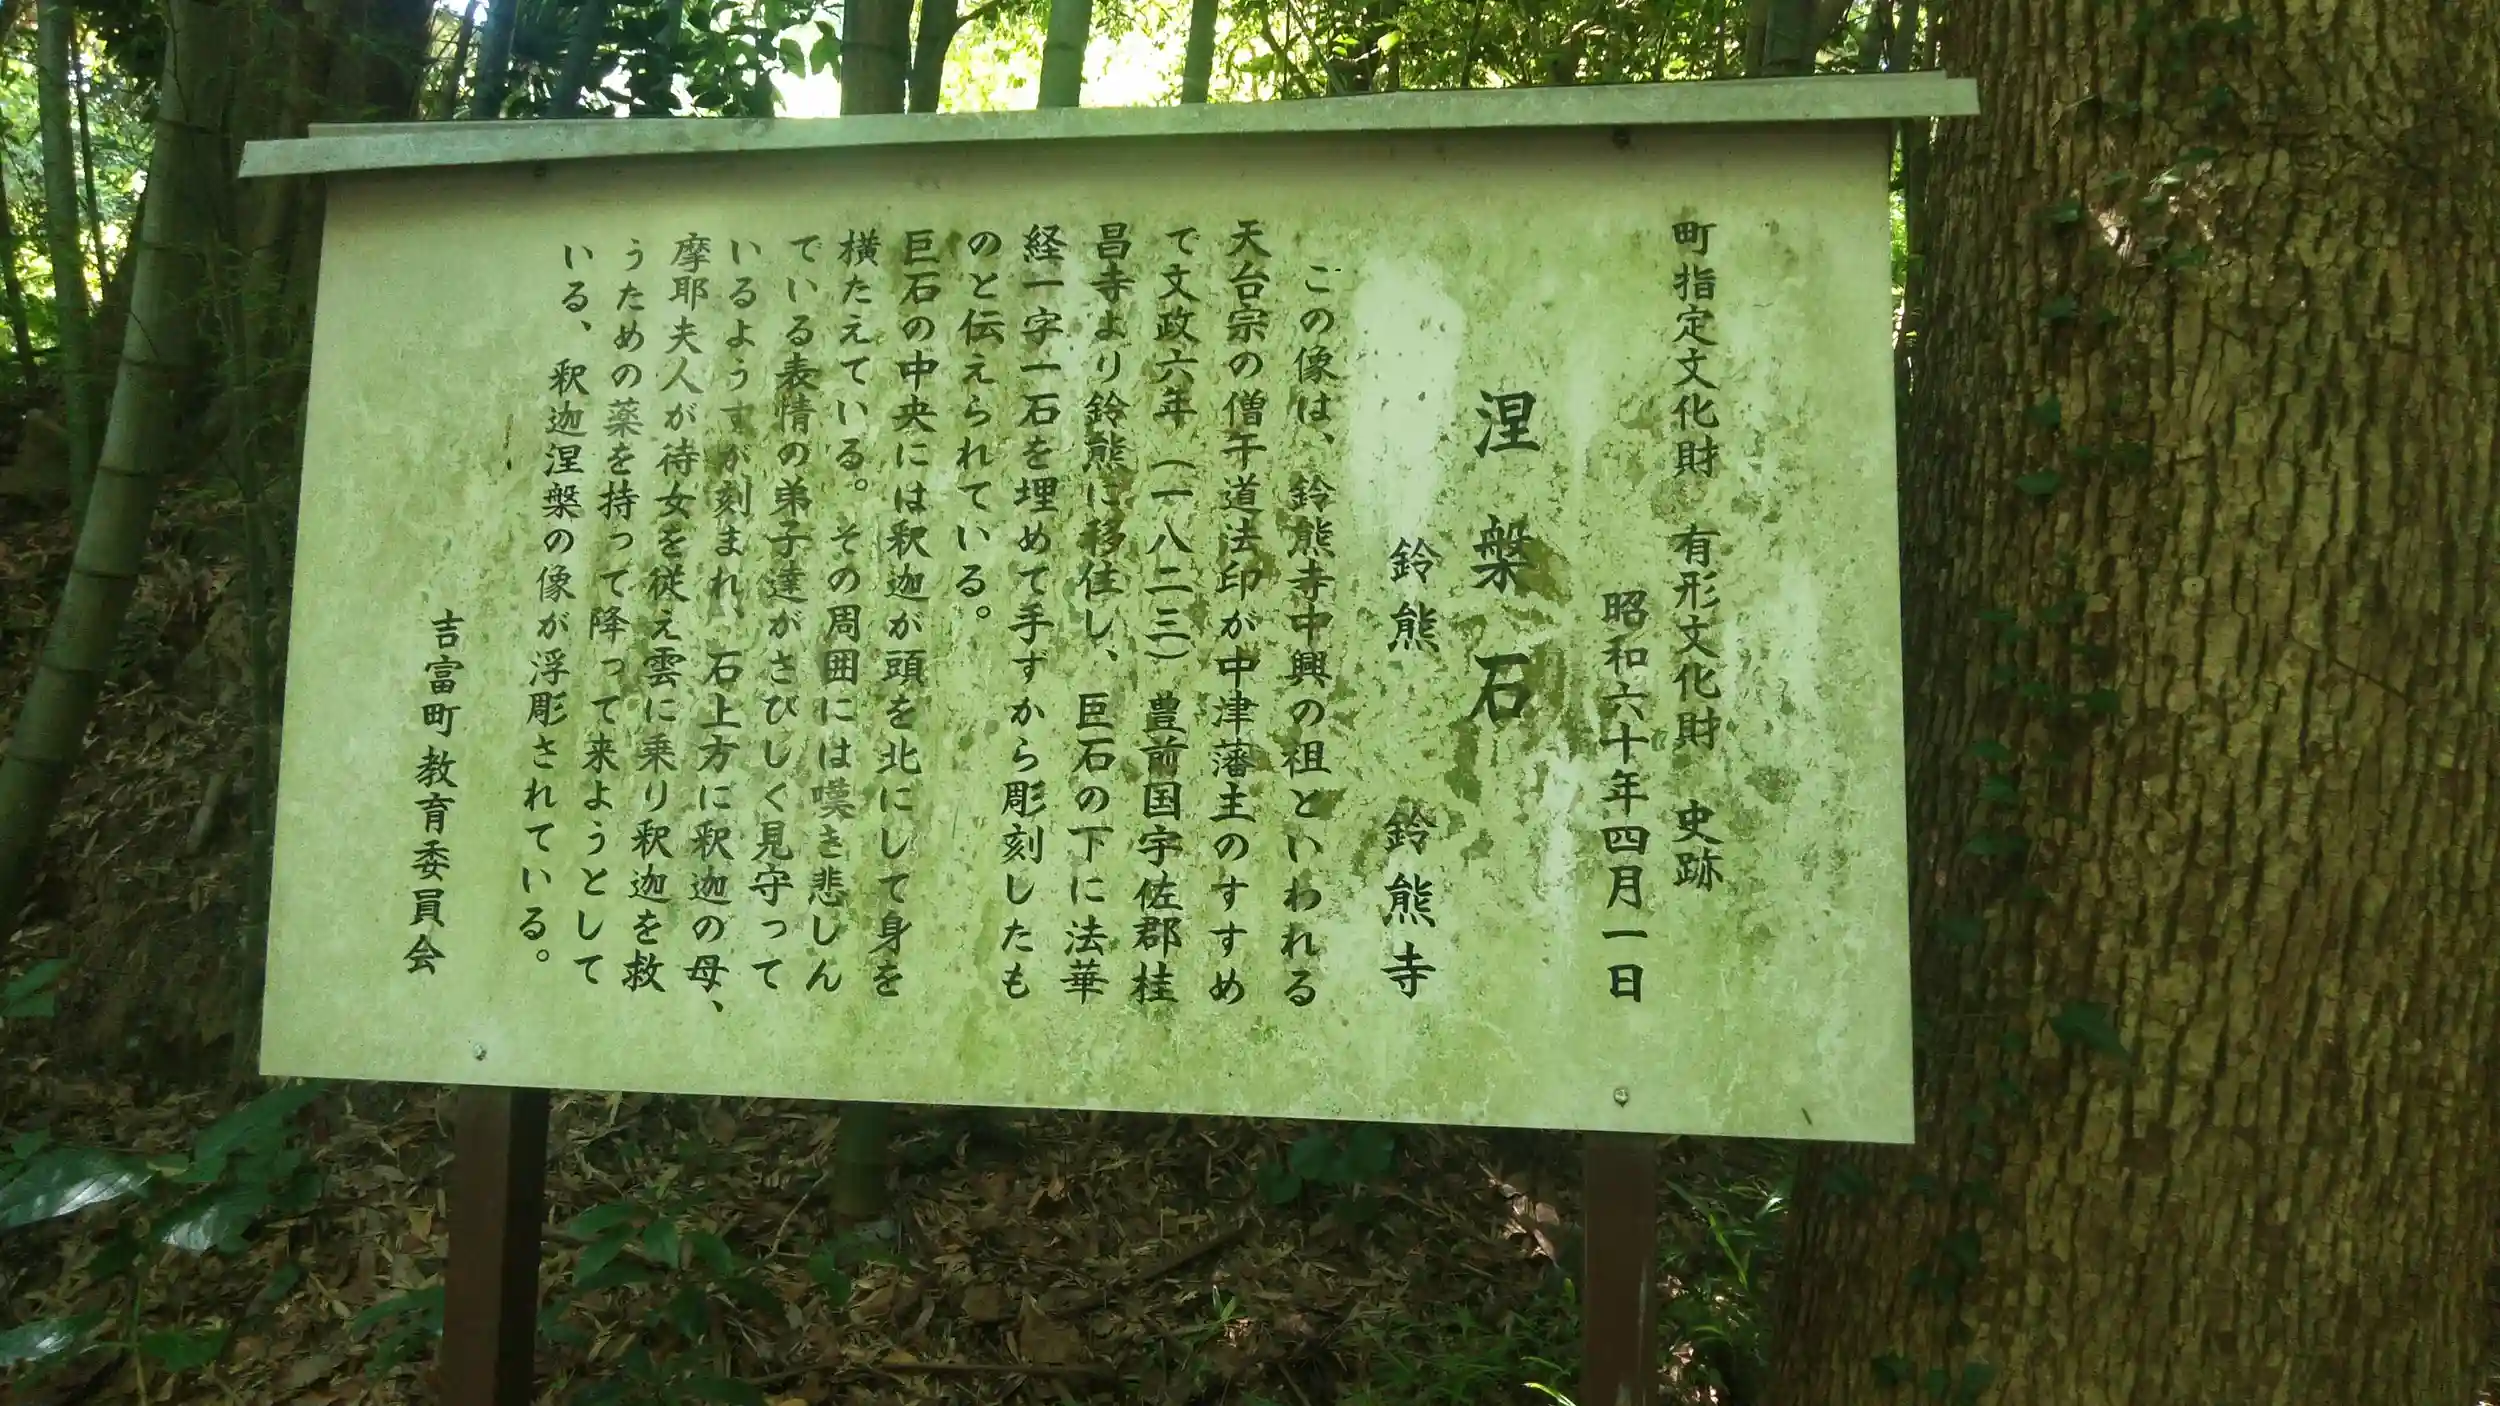 町指定文化財　有形文化財　史跡
昭和六十年四月一日
涅槃石
鈴熊　鈴熊寺
この像は、鈴熊寺中興の祖といわれる
天台宗の僧午道法印が中津藩主のすすめ
で文政六年（一八二三）豊前国宇佐郡桂
昌寺より鈴熊に移住し、巨石の下に法華
経一字一石を埋めて手ずから彫刻したも
のと伝えられている。
巨石の中央には釈迦が頭を北にして身を
横たえている。その周囲には嘆き悲しん
でいる表情の弟子達がさびしく見守って
いるようすが刻まれ、石上方に釈迦の母、
摩耶夫人が待女を従え雲に乗り釈迦を救
うための薬を持って降って来ようとして
いる、釈迦涅槃の像が浮彫されている。
吉富町教育委員会